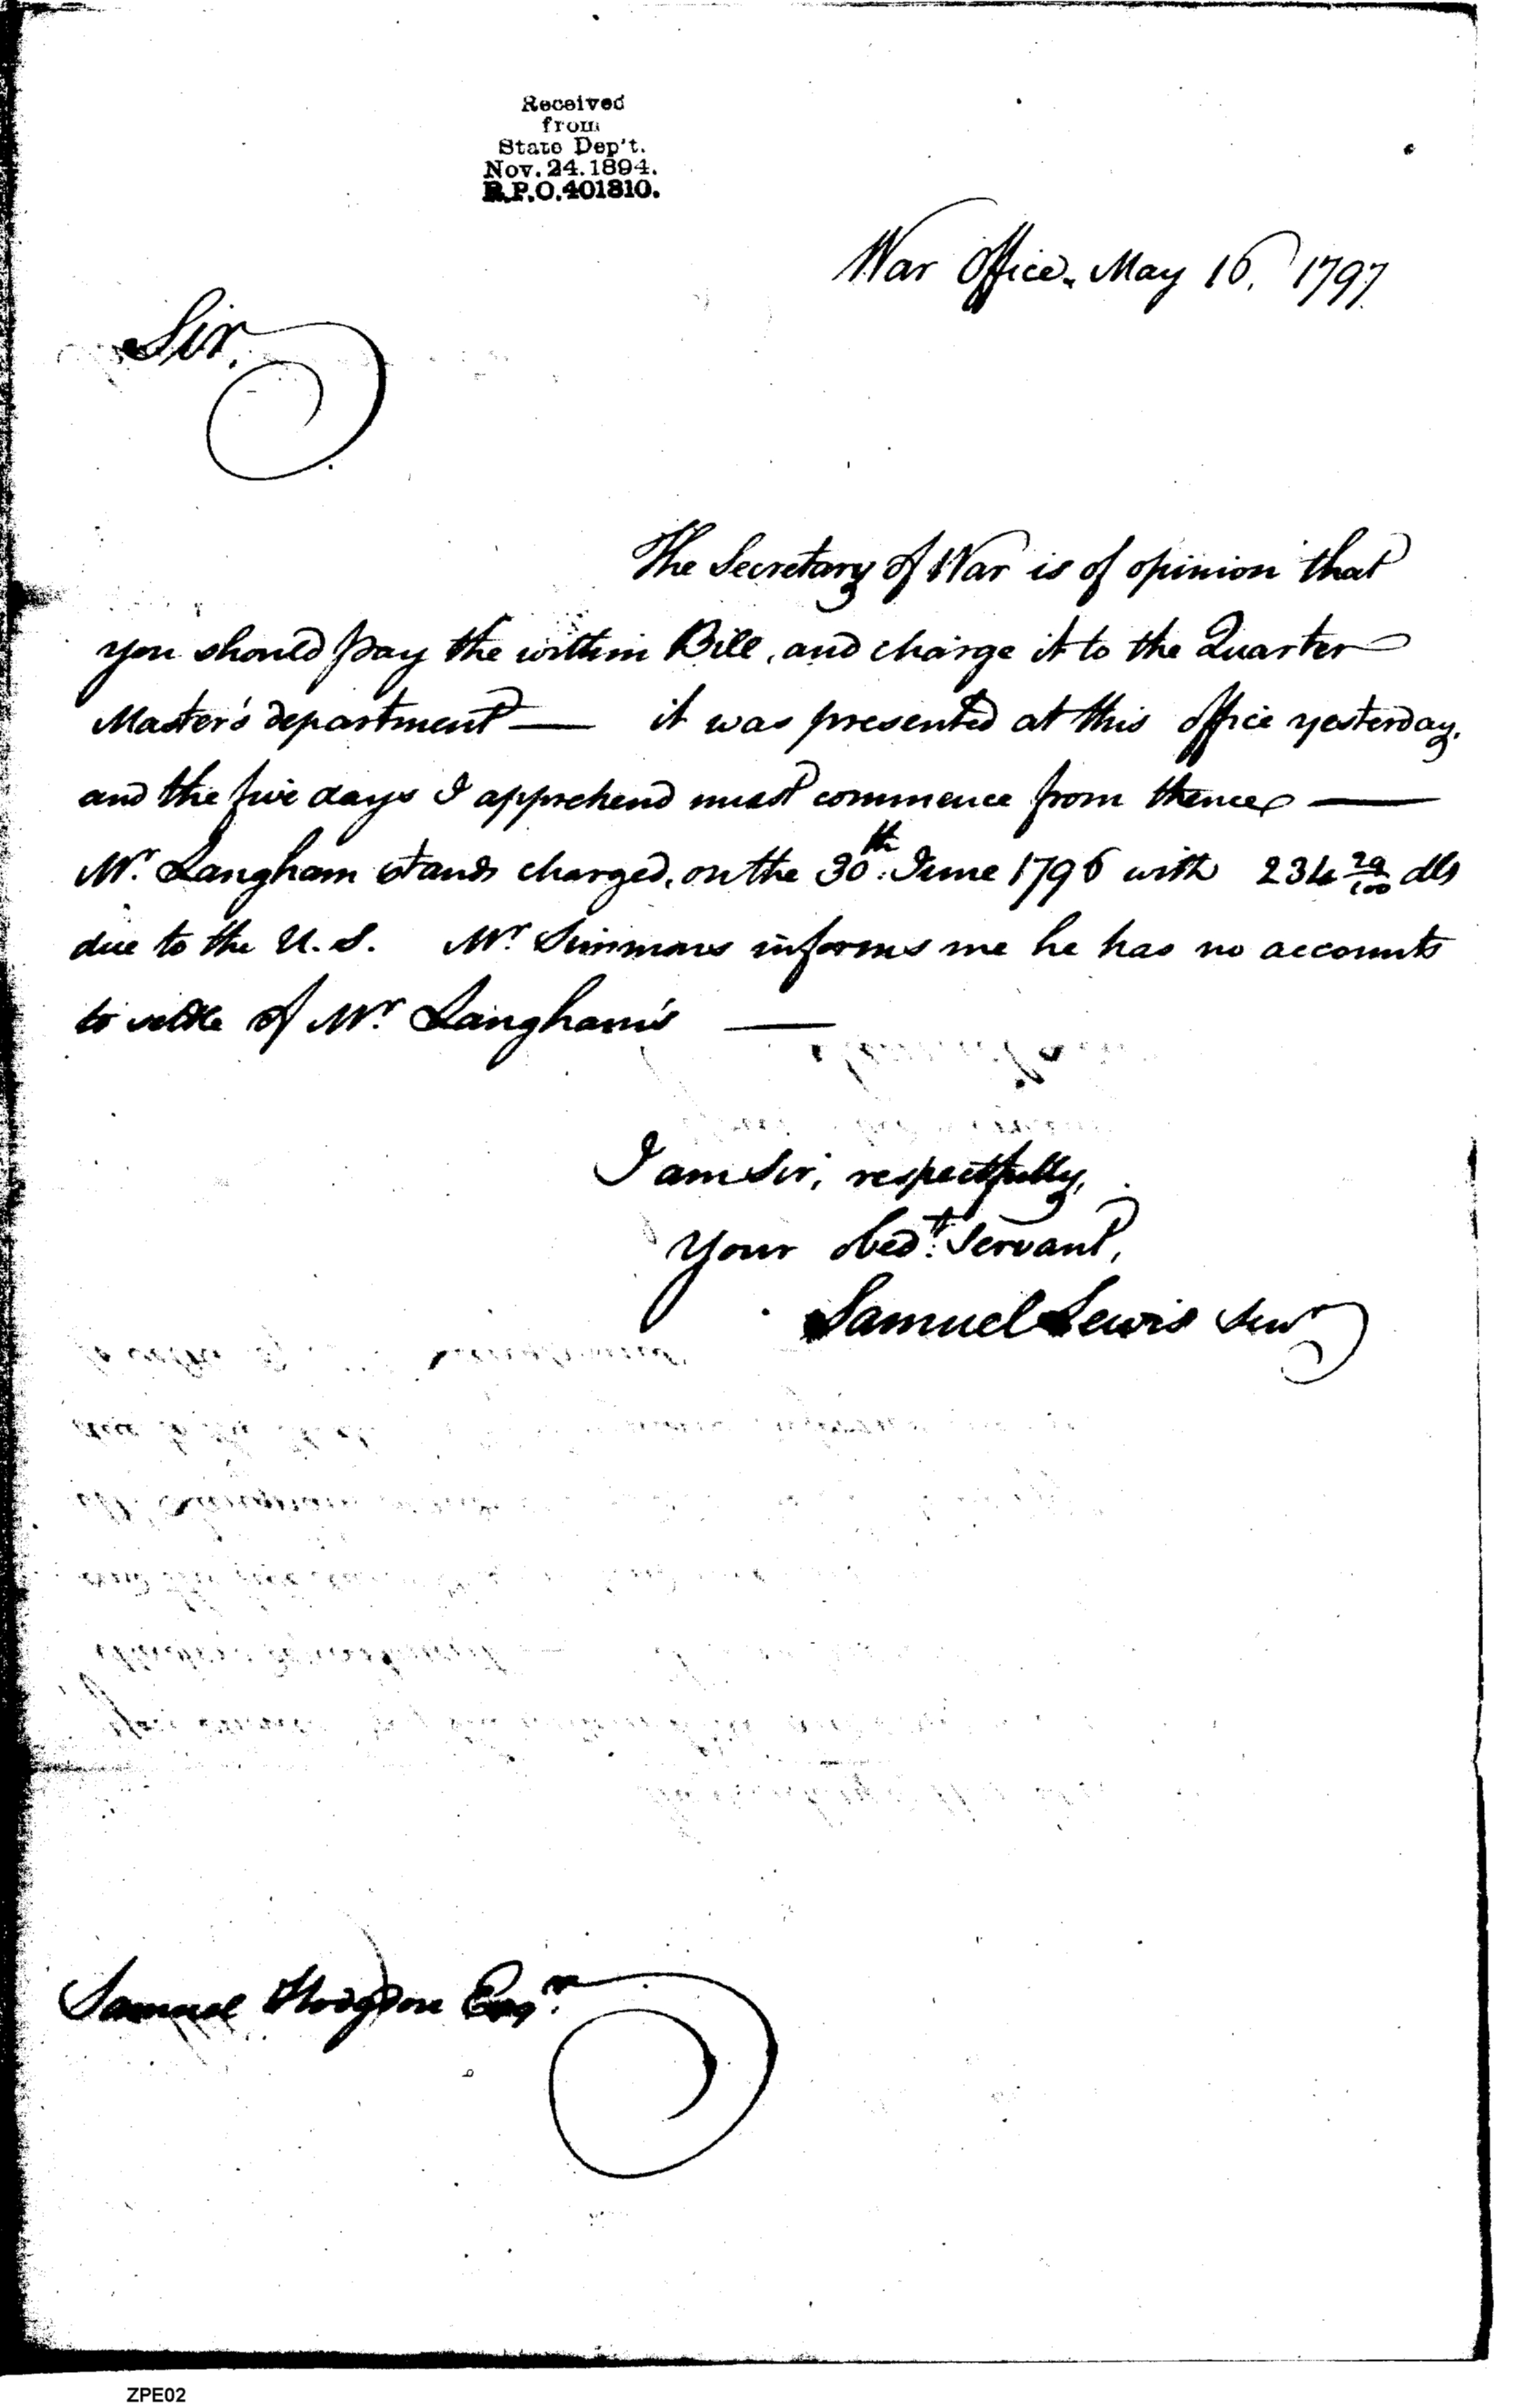 Received
from
State Dep't.
Nov. 24. 1894.
R.P.O. 401810.
War Office. May 16, 1797
Sir.
The Secretary of War is of opinion that
you should pay the within Bill, and charge it to the Quarter
Master's department — it was presented at this office yesterday.
and the five days I apprehend must commence from thence —
Mr. Langham stands charged, on the 30th: June 1796 with 234 29/100 dls
due to the U. S. Mr Simmons informs me he has no accounts
to settle of Mr. Langham's —
I am Sir, respectfully,
Your obedt: Servant,
Samuel Lewis Senr
Samuel Hodgdon Esqr.
ZPE02